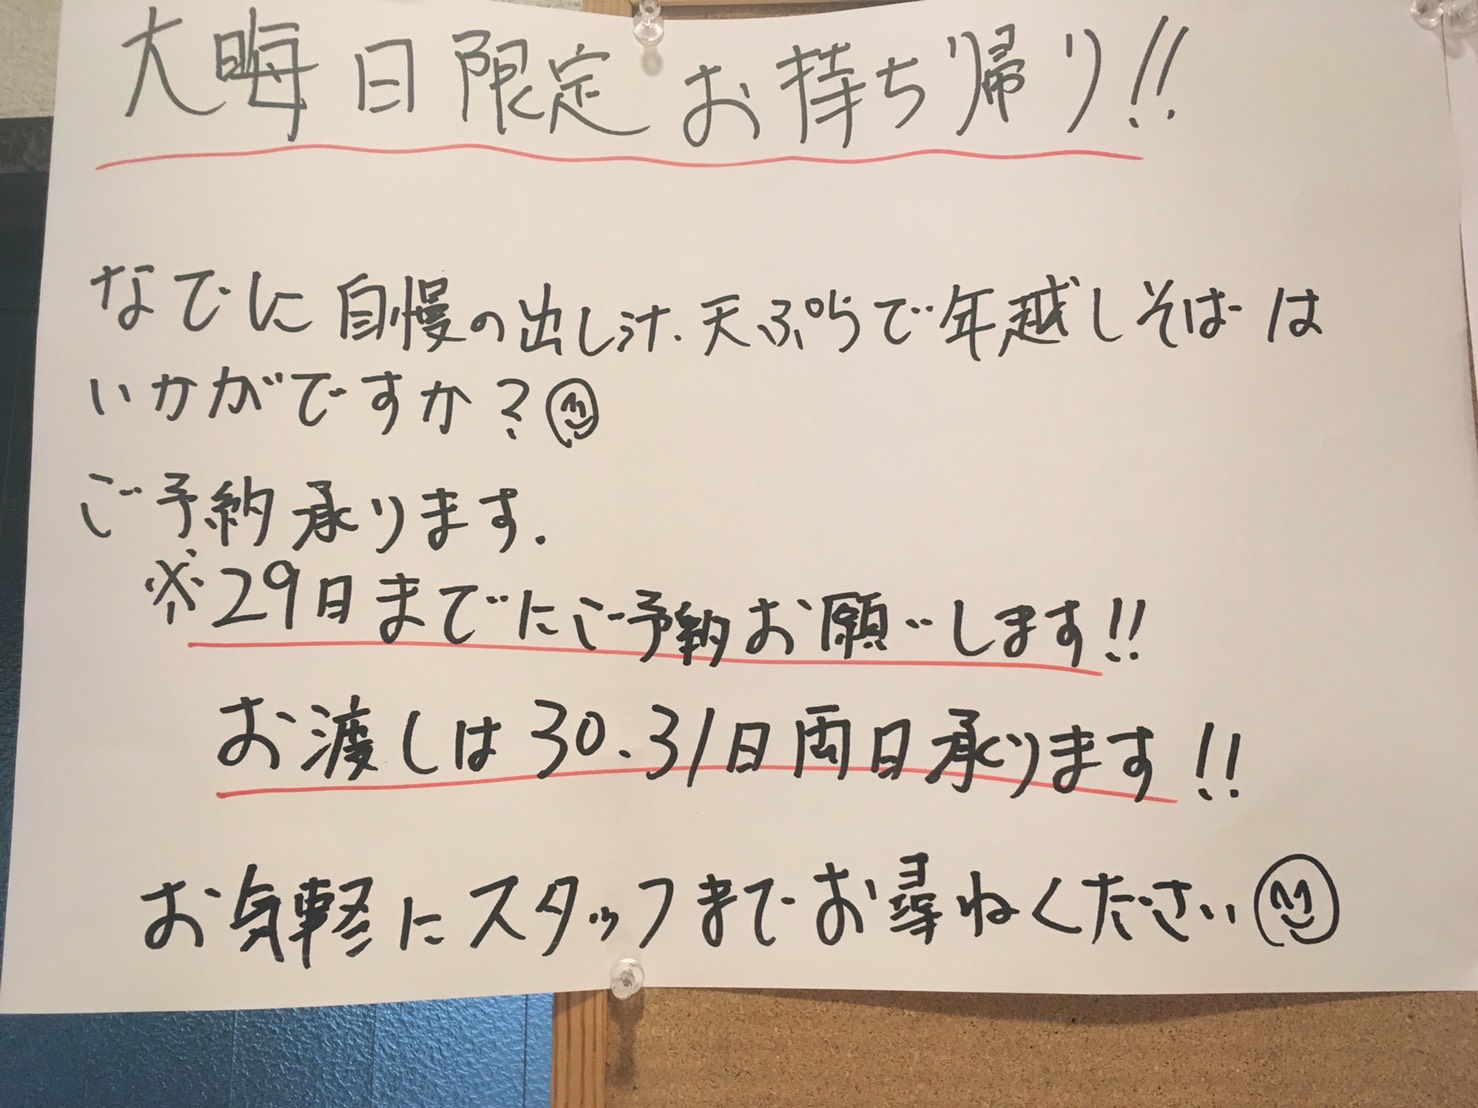 大晦日限定 お持ち帰り!!
なでに 自慢の出し汁、天ぷらで年越しそばは
いかがですか?
ご予約承ります.
※29日までにご予約お願いします!!
お渡しは30.31日両日承ります!!
お気軽にスタッフまでお尋ねください